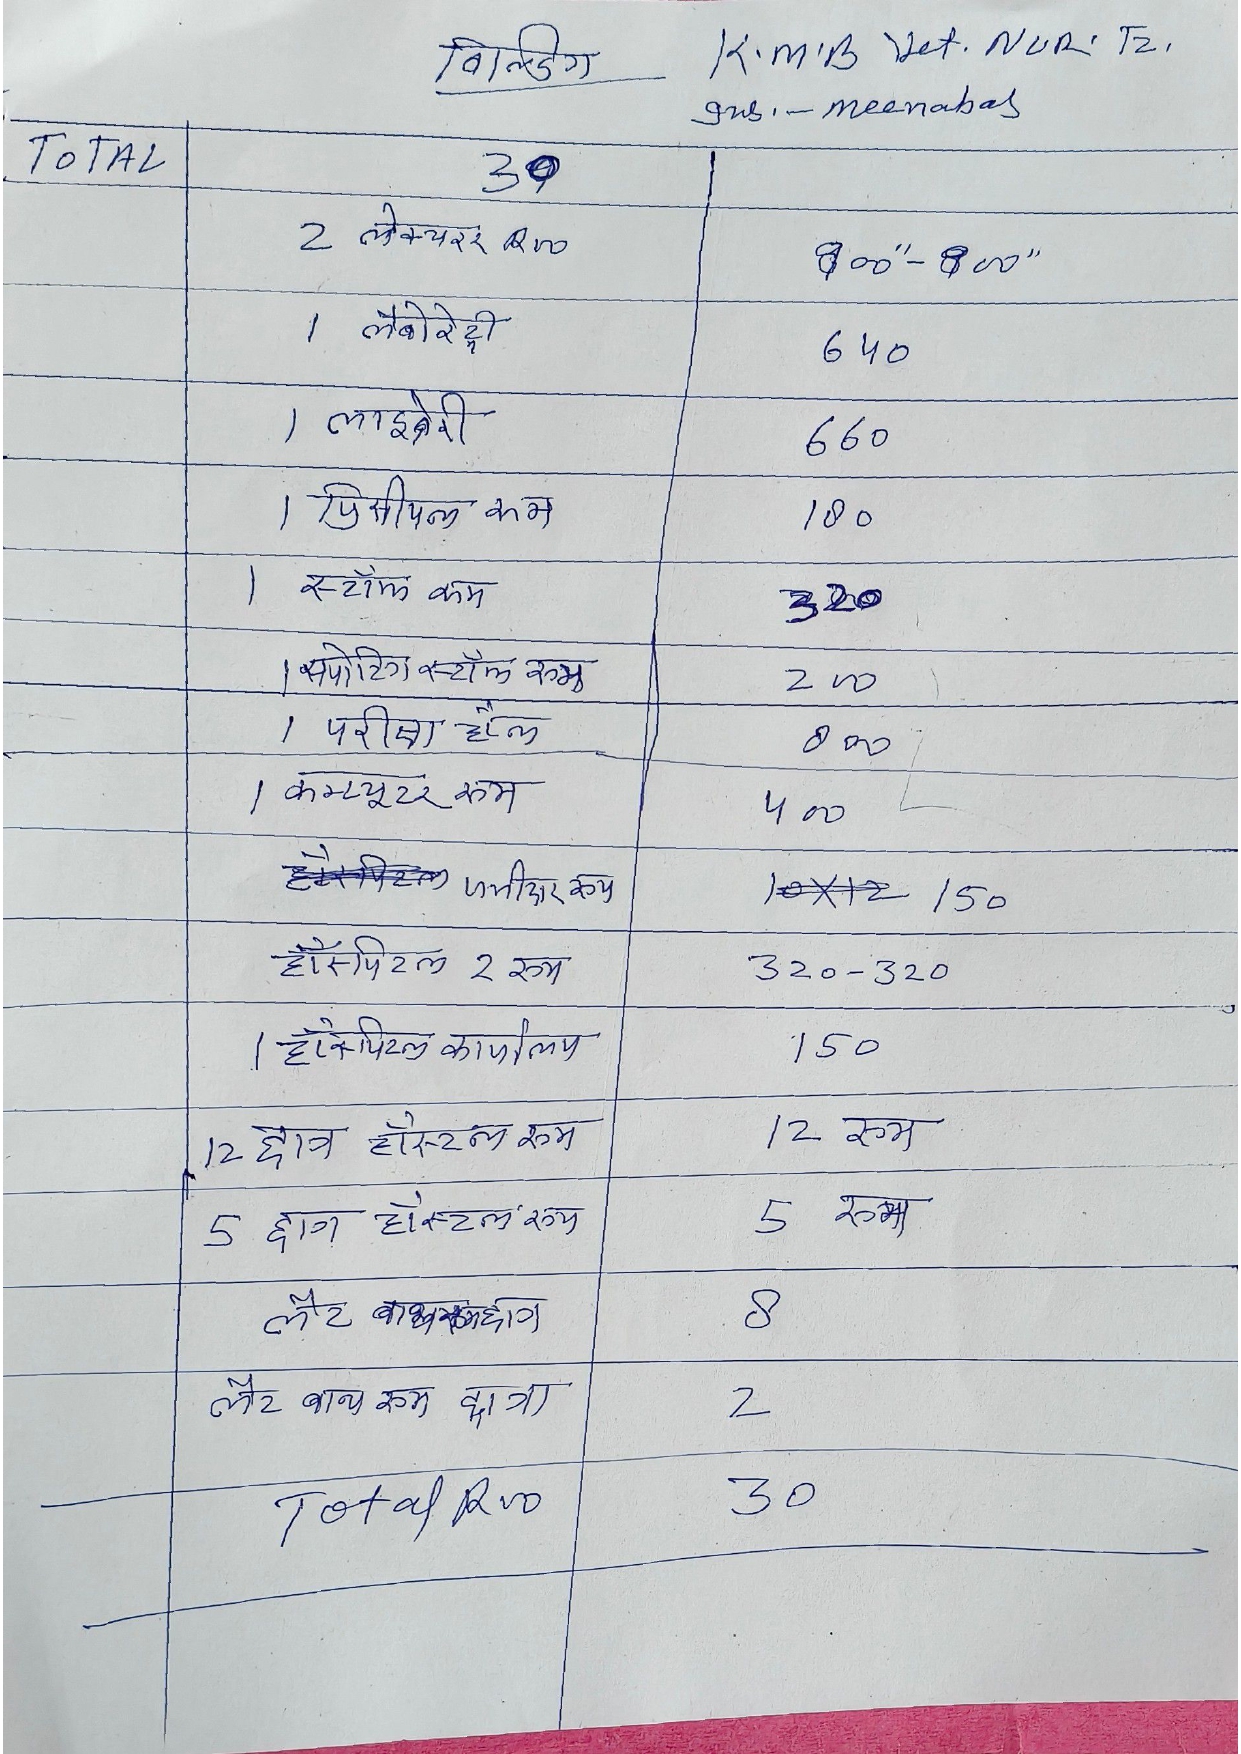 बिल्डिंग K.M.B Vet. NUR. Tz.
Ins. - Meenabad
TOTAL 30
2 लेक्चरर Rvo 800"-800"
1 लैबोरेट्री 640
1 लाइब्रेरी 660
1 प्रिंसीपल कम 180
1 स्टॉफ कम 320
1 सपोटिंग स्टॉफ रूम 200
1 परीक्षा हॉल 800
1 कम्प्यूटर रूम 400
हॉस्पिटल रूम 10X12 150
हॉस्पिटल 2 रूम 320-320
1 हॉस्पिटल कार्यालय 150
12 छात्र हॉस्टल रूम 12 रूम
5 छात्र हॉस्टल रूम 5 रूम
लैट बाथरूम छात्र 8
लैट बाथ रूम छात्रा 2
Total Rvo 30